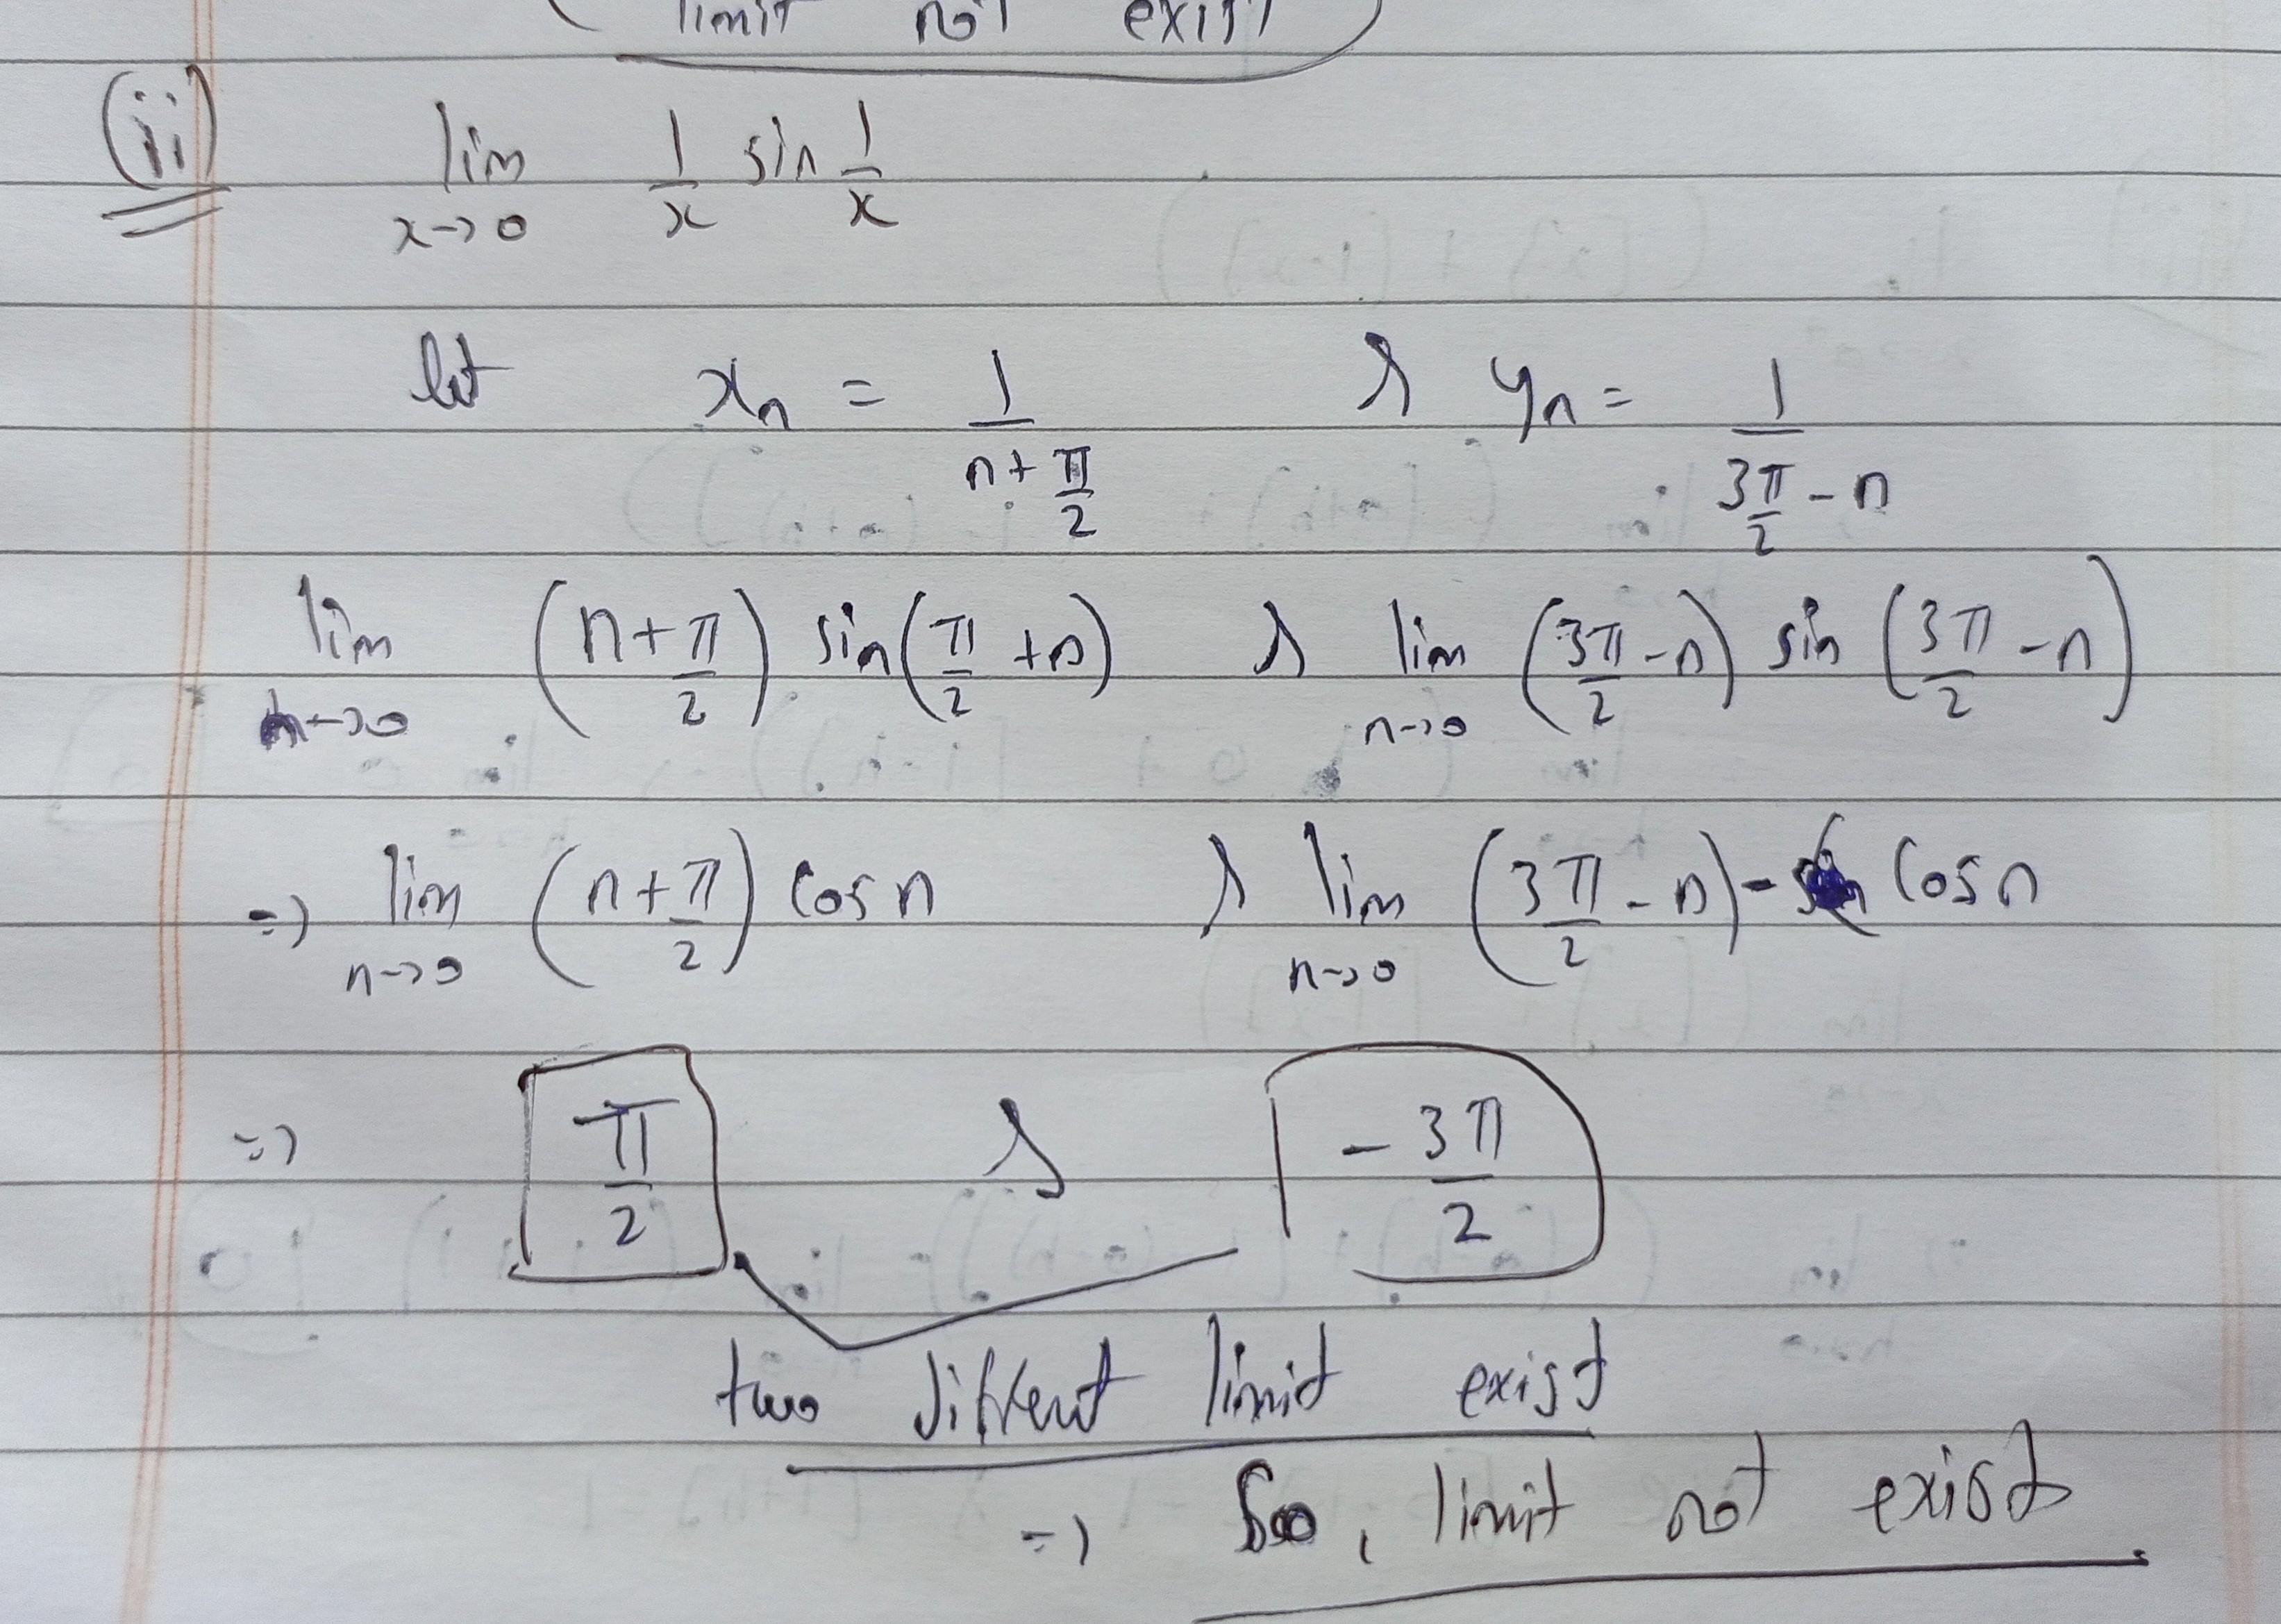 limit not exist
(ii) lim x→0 1/x sin 1/x
let xₙ = 1/(n + π/2) & yₙ = 1/(3π/2 - n)
lim n→0 (n + π/2) sin(π/2 + n) & lim n→0 (3π/2 - n) sin (3π/2 - n)
=> lim n→0 (n + π/2) cos n & lim n→0 (3π/2 - n) - cos n
=> π/2 & -3π/2
two different limit exist
=> So, limit not exist